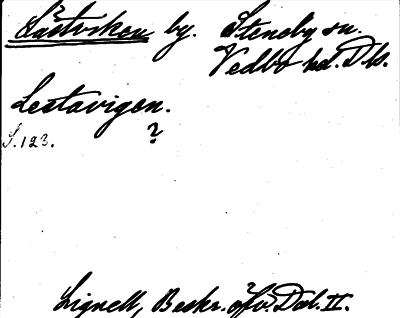 Låstviken by. Steneby sn.
Vedbo hd. Dls.
Lestavigen.
S. 123. ?
Lignell, Beskr. öfv. Dal. II.